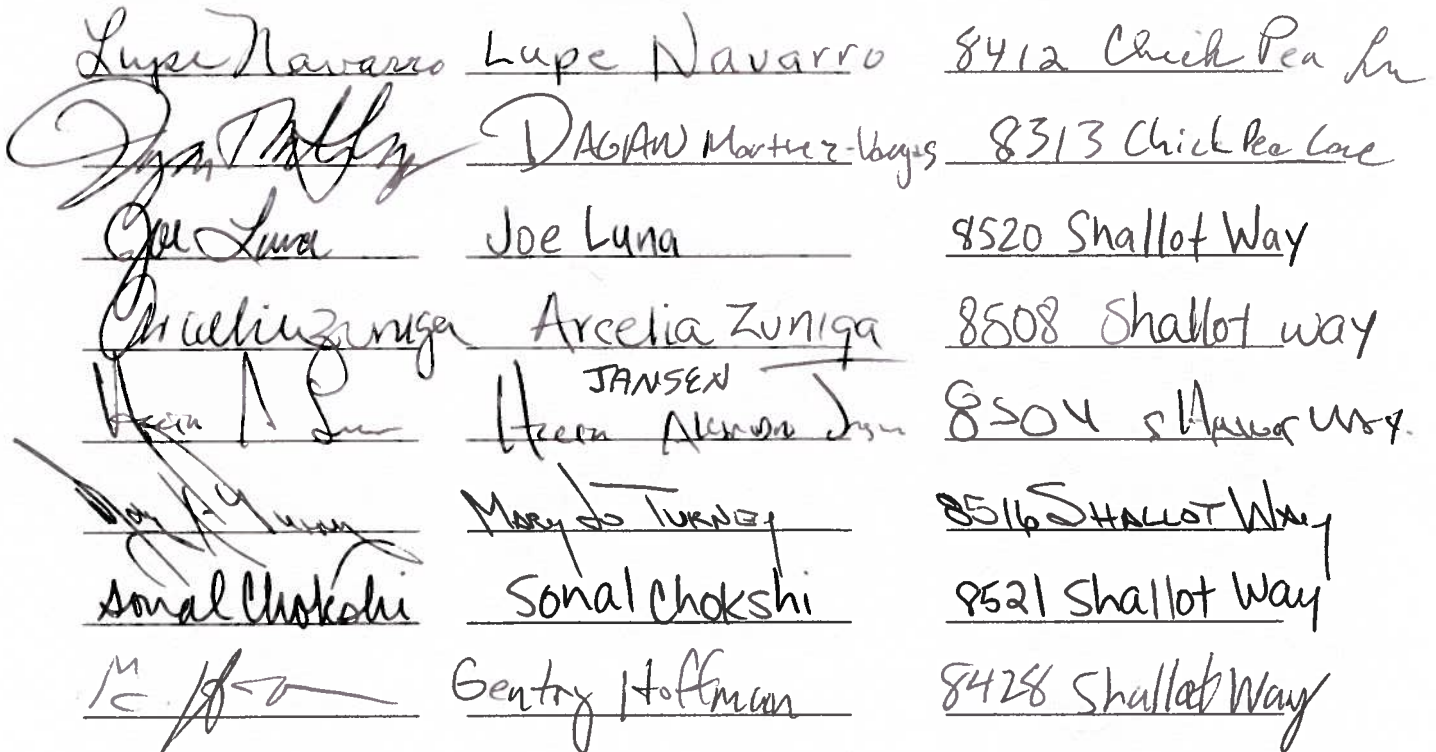 Lupe Navarro Lupe Navarro 8412 Chick Pea Ln
DAGAN Martinez-Vargas 8313 Chick Pea Lane
Joe Luna Joe Luna 8520 Shallot Way
Arcelia Zuniga Arcelia Zuniga 8508 Shallot way
JANSEN
8504 Shallot Way.
MARY JO TURNEY 8516 SHALLOT WAY
Sonal Chokshi Sonal Chokshi 8521 Shallot Way
Gentry Hoffman 8428 Shallot Way